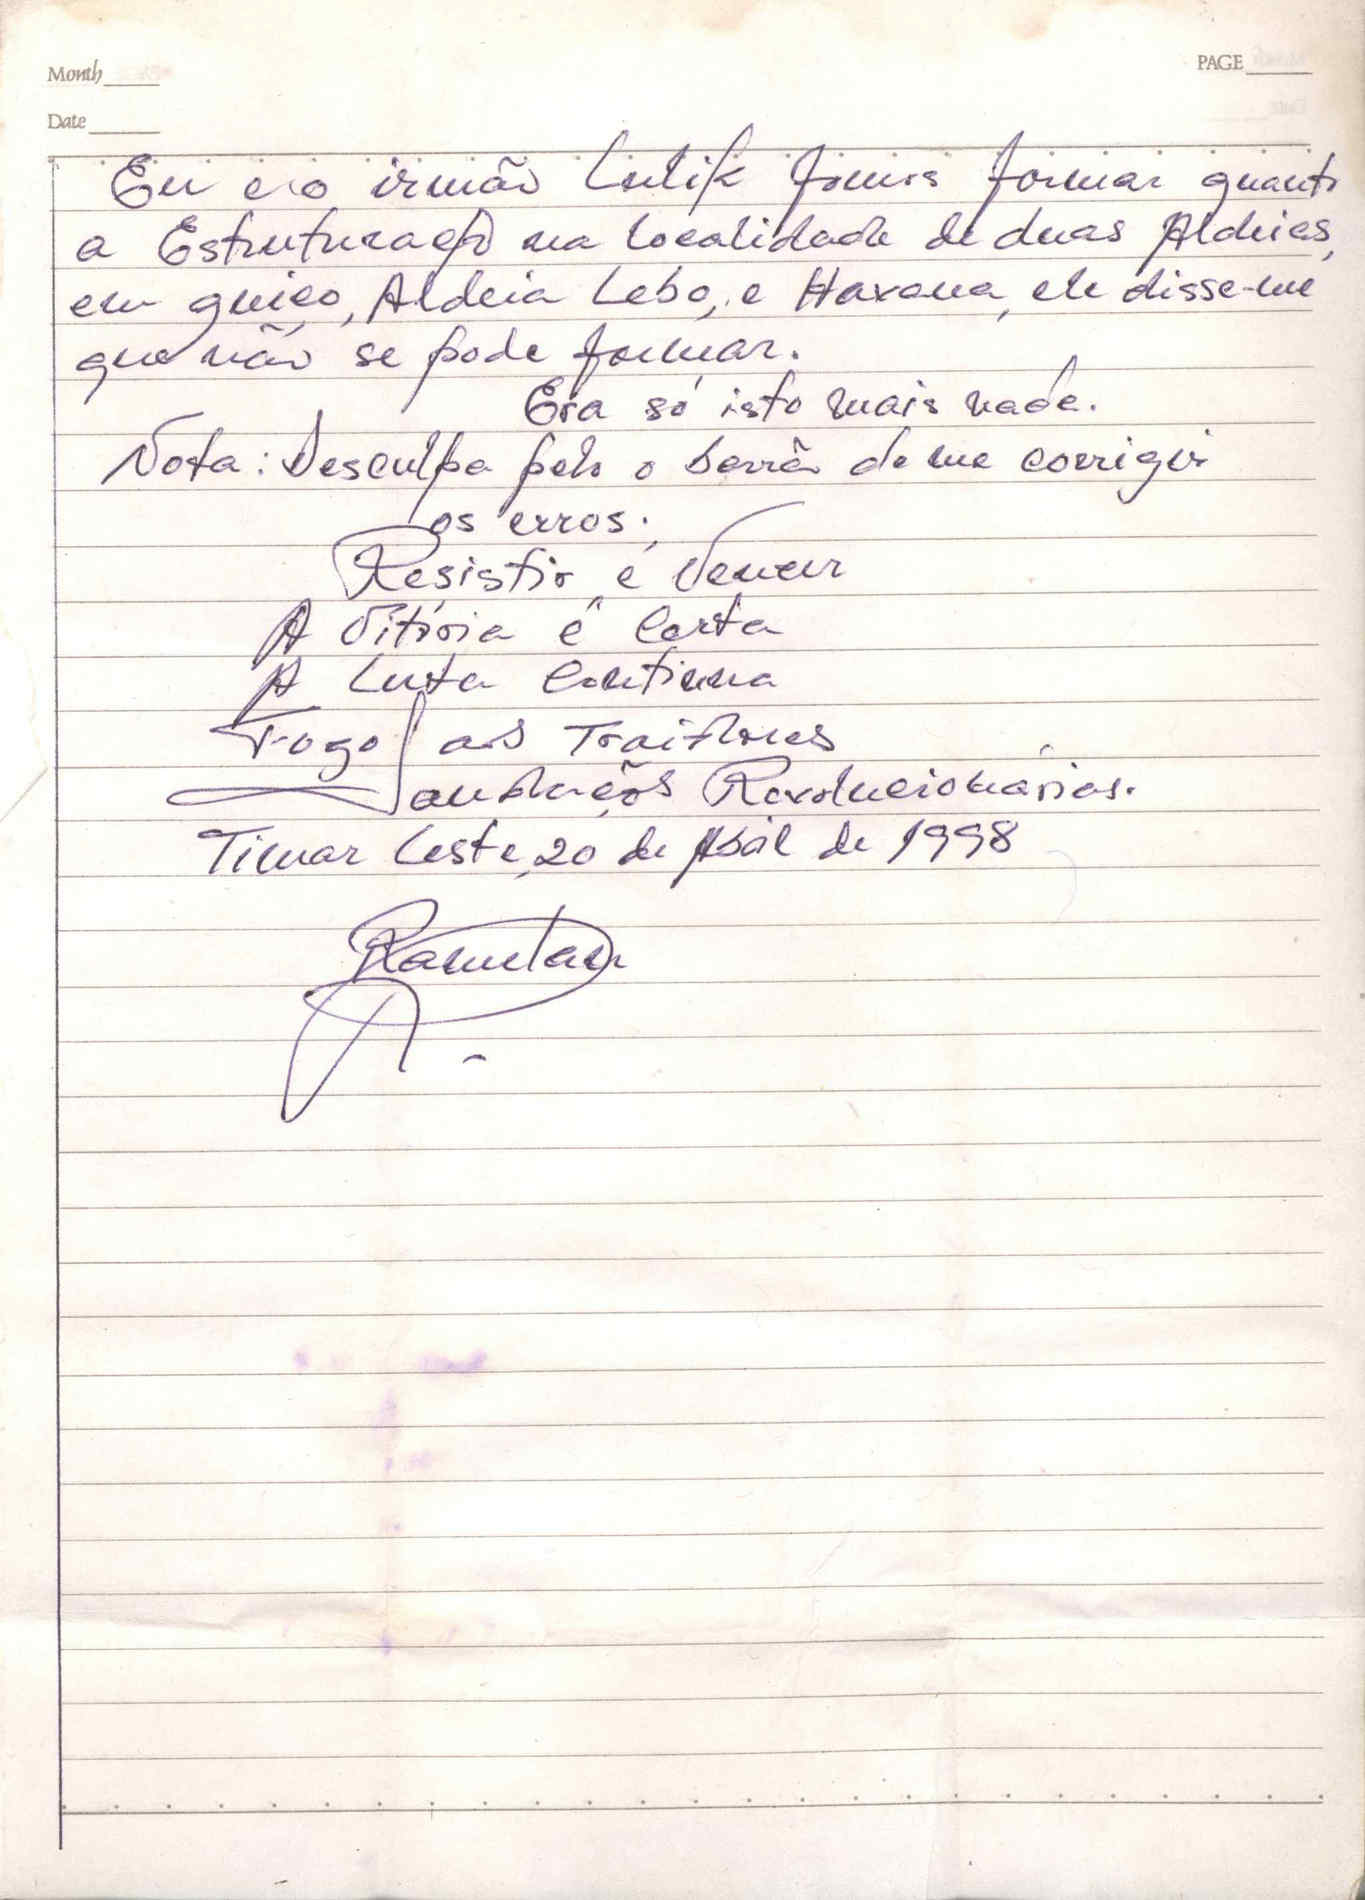 Month
PAGE
Date
Eu e o irmão Lulik fomos formar quanto
a Estruturação na localidade de duas Aldeias,
em guiço, Aldeia Lebo, e Havana, ele disse-me
que não se pode formar.
Era só isto mais nada.
Nota: Desculpa pelo o borrão de me corrigir
os erros;
Resistir é Vencer
A Vitória é Certa
A Luta Continua
Fogo aos Traidores
Saudações Revolucionárias.
Timor Leste, 20 de Abril de 1998
Ramelan